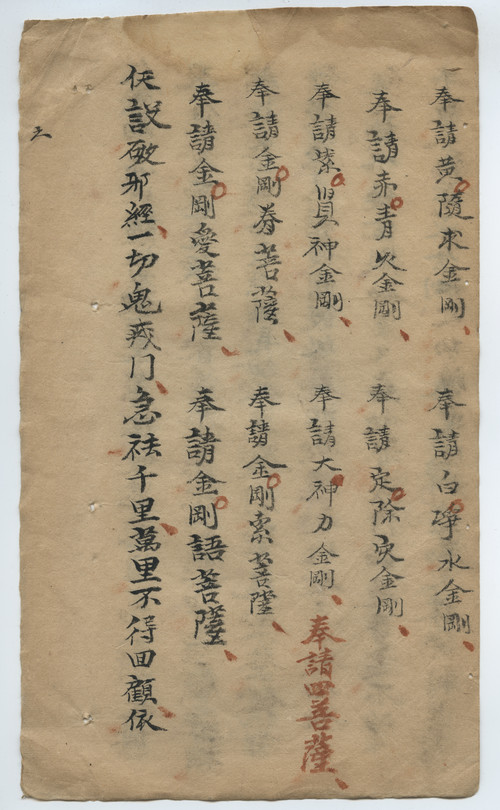 奉請黃隨求金剛、奉請白淨水金剛、
奉請赤青火金剛、奉請定除灾金剛、
奉請紫賢神金剛、奉請大神力金剛、奉請四菩薩、
奉請金剛眷菩薩、奉請金剛索菩薩、
奉請金剛愛菩薩、奉請金剛語菩薩、
仸說破邪經、一切鬼疾门、急祛千里萬里不得回顧依